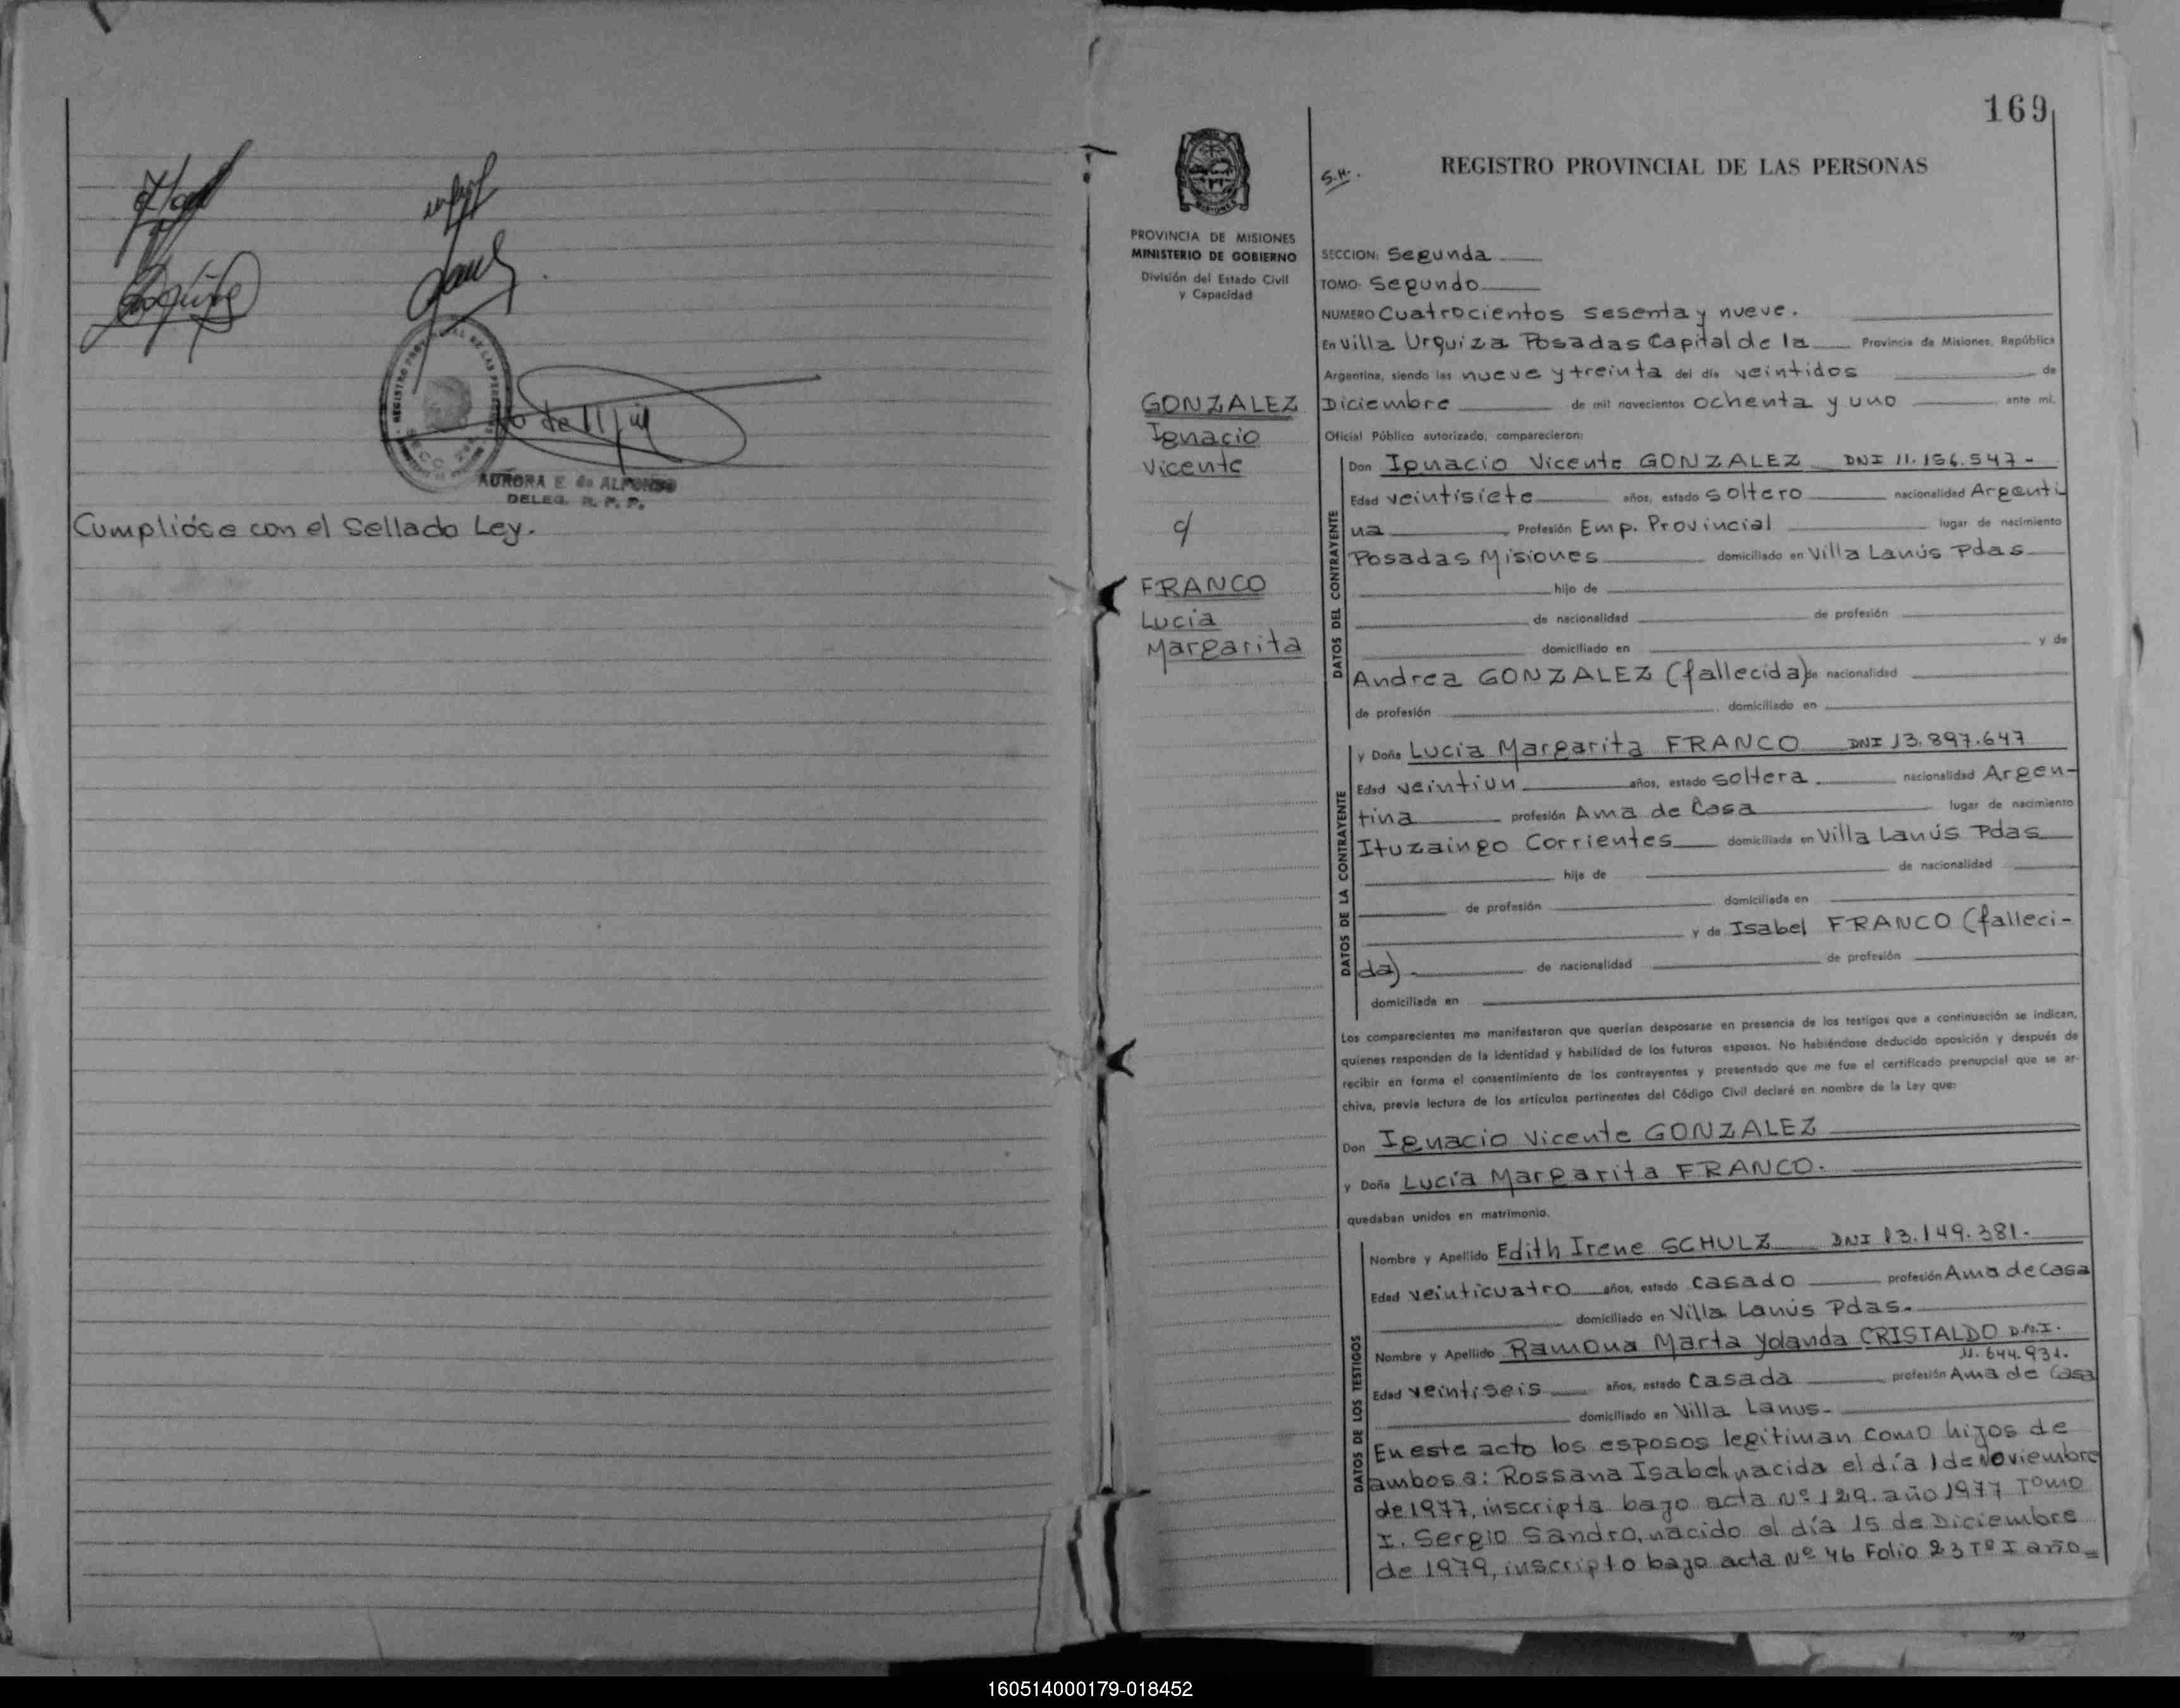 Cumplióse con el Sellado Ley.
AURORA E. de ALFONSO
DELEG. R. P. P.
169
S.H.
REGISTRO PROVINCIAL DE LAS PERSONAS
PROVINCIA DE MISIONES
MINISTERIO DE GOBIERNO
División del Estado Civil
y Capacidad
GONZALEZ
Ignacio
Vicente
c/
FRANCO
Lucía
Margarita
SECCION: Segunda
TOMO: Segundo
NUMERO Cuatrocientos sesenta y nueve.
En Villa Urquiza Posadas Capital de la Provincia de Misiones, República
Argentina, siendo las nueve y treinta del día veintidos de
Diciembre de mil novecientos ochenta y uno ante mí,
Oficial Público autorizado, comparecieron:
DATOS DEL CONTRAYENTE
Don Ignacio Vicente GONZALEZ DNI 11.156.547-
Edad veintisiete años, estado soltero nacionalidad Argenti
na Profesión Emp. Provincial lugar de nacimiento
Posadas Misiones domiciliado en Villa Lanús Pdas
hijo de
de nacionalidad de profesión
domiciliado en y de
Andrea GONZALEZ (fallecida) de nacionalidad
de profesión domiciliado en
DATOS DE LA CONTRAYENTE
y Doña Lucía Margarita FRANCO DNI 13.897.647
Edad veintiun años, estado soltera nacionalidad Argen-
tina profesión Ama de Casa lugar de nacimiento
Ituzaingo Corrientes domiciliada en Villa Lanús Pdas
hija de de nacionalidad
de profesión domiciliada en
y de Isabel FRANCO (falleci-
da) de nacionalidad de profesión
domiciliada en
Los comparecientes me manifestaron que querían desposarse en presencia de los testigos que a continuación se indican,
quienes responden de la identidad y habilidad de los futuros esposos. No habiéndose deducido oposición y después de
recibir en forma el consentimiento de los contrayentes y presentado que me fue el certificado prenupcial que se ar-
chiva, previa lectura de los artículos pertinentes del Código Civil declaré en nombre de la Ley que:
Don Ignacio Vicente GONZALEZ
y Doña Lucía Margarita FRANCO.
quedaban unidos en matrimonio.
DATOS DE LOS TESTIGOS
Nombre y Apellido Edith Irene SCHULZ DNI 13.149.381.
Edad veinticuatro años, estado casado profesión Ama de casa
domiciliado en Villa Lanús Pdas.
Nombre y Apellido Ramona Marta Yolanda CRISTALDO D.N.I.
11.644.931.
Edad veintiseis años, estado casada profesión Ama de Casa
domiciliado en Villa Lanus-
En este acto los esposos legitiman como hijos de
ambos a: Rossana Isabel, nacida el día 1 de Noviembre
de 1977, inscripta bajo acta Nº 129. año 1977 Tomo
I. Sergio Sandro, nacido el día 15 de Diciembre
de 1979, inscripto bajo acta Nº 46 Folio 23 Tº I año=
160514000179-018452